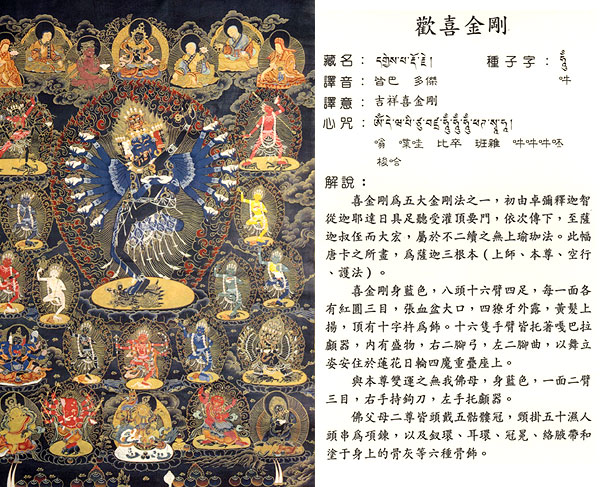 歡喜金剛
藏名：དགྱེས་པ་རྡོ་རྗེ། 種子字：ཧཱུྃ
譯音：皆巴 多傑 吽
譯意：吉祥喜金剛
心咒：ཨོཾ་དེ་ཝ་པི་ཙུ་བཛྲ་ཧཱུྃ་ཧཱུྃ་ཧཱུྃ་ཕཊ་སྭཱ་ཧཱ།
嗡 喋哇 比卒 班雜 吽吽吽呸
梭哈
解說：
喜金剛爲五大金剛法之一，初由卓彌釋迦智
從迦耶達日具足聽受灌頂要門，依次傳下，至薩
迦叔侄而大宏，屬於不二續之無上瑜珈法。此幅
唐卡之所畫，爲薩迦三根本（上師、本尊、空行
、護法）。
喜金剛身藍色，八頭十六臂四足，每一面各
有紅圓三目，張血盆大口，四獠牙外露，黃髮上
揚，頂有十字杵爲飾。十六隻手臂皆托著嘎巴拉
顱器，内有盛物，右二腳弓，左二腳曲，以舞立
姿安住於蓮花日輪四魔重疊座上。
與本尊雙運之無我佛母，身藍色，一面二臂
三目，右手持鉤刀，左手托顱器。
佛父母二尊皆頭戴五骷髏冠，頸掛五十濕人
頭串爲項鍊，以及釵環、耳環、冠冕、絡腋帶和
塗于身上的骨灰等六種骨飾。